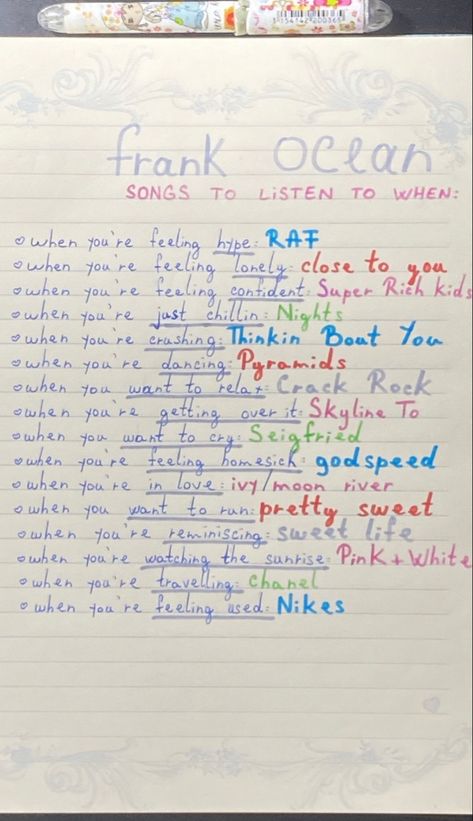 3154142200365
frank Ocean
SONGS TO LiSTEN TO WHEN:
when you're feeling hype: RAF
when you're feeling lonely: close to you
when you're feeling confident: Super Rich kids
when you're just chillin: Nights
when you're crushing: Thinkin Bout You
when you're dancing: Pyramids
when you want to relax: Crack Rock
when you're getting over it: Skyline To
when you want to cry: Seigfried
when you're feeling homesick: godspeed
when you're in love: ivy/moon river
when you want to run: pretty sweet
when you're reminiscing: sweet life
when you're watching the sunrise: Pink + White
when you're travelling: chanel
when you're feeling used: Nikes